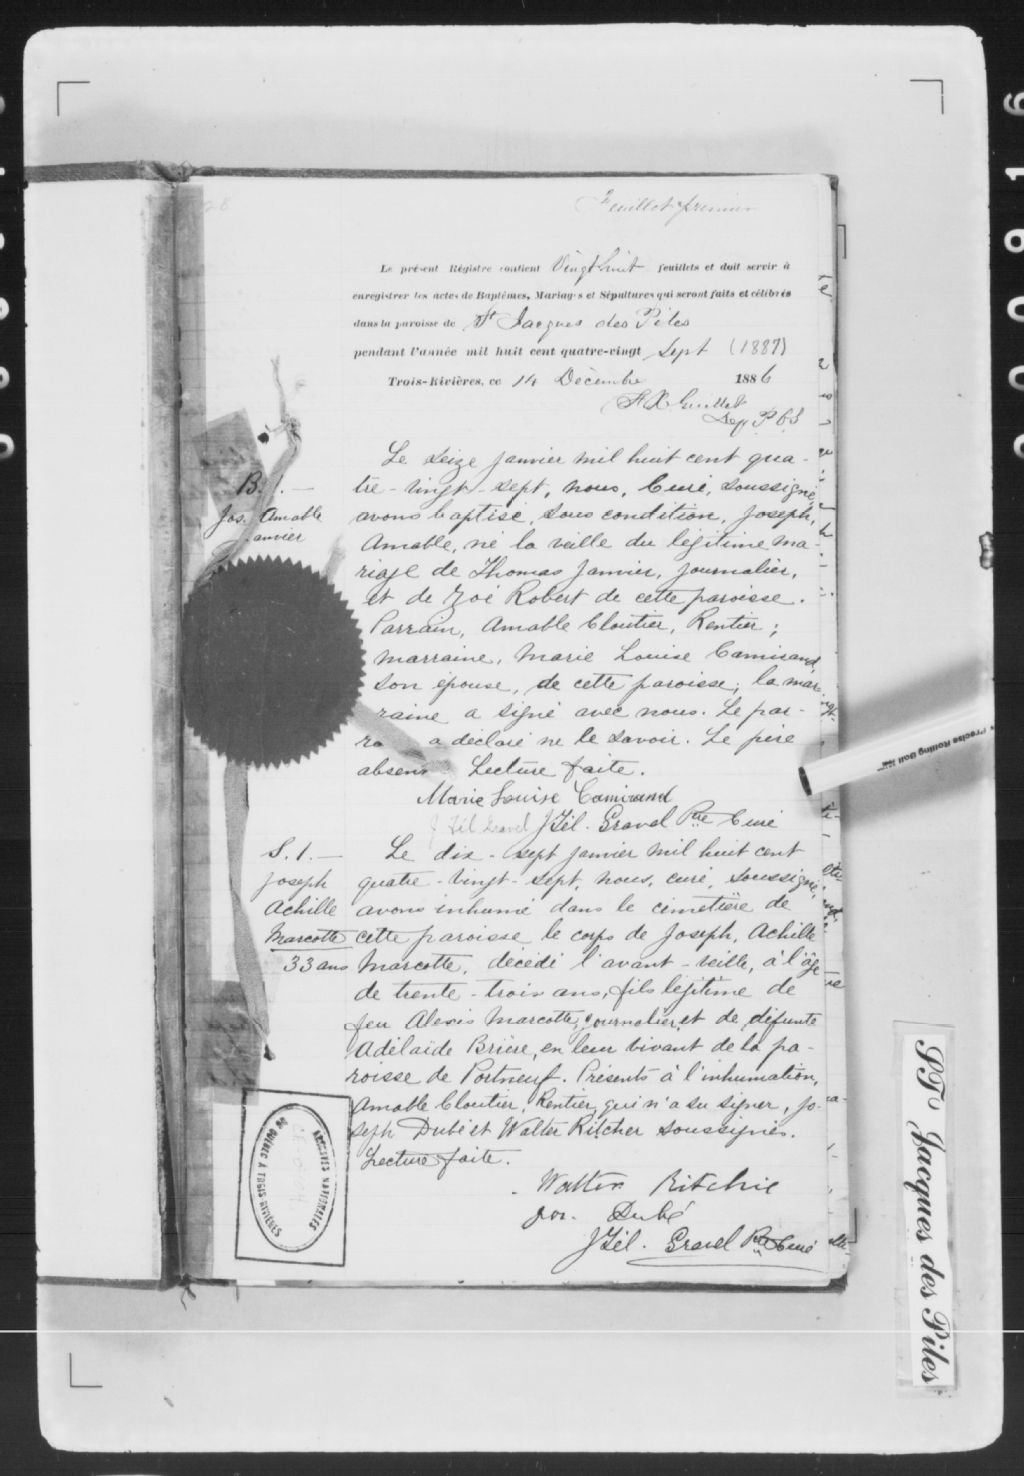 Feuillet premier
Le présent Régistre contient Vingt huit feuillets et doit servir à
enregistrer les actes de Baptêmes, Mariages et Sépultures qui seront faits et célébrés
dans la paroisse de St Jacques des Piles
pendant l'année mil huit cent quatre-vingt Sept (1887)
Trois-Rivières, ce 14 Décembre 1886
F. X. Guillet
Dep P C S
B. 1. —
Jos. Amable
Janvier
Le seize janvier mil huit cent qua-
tre-vingt-sept, nous, Curé, soussigné,
avons baptisé, sous condition, Joseph,
Amable, né la veille du légitime ma-
riage de Thomas Janvier, journalier,
et de Zoé Robert de cette paroisse.
Parrain, Amable Cloutier, Rentier;
marraine, Marie Louise Camirand,
son épouse, de cette paroisse; la mar-
raine a signé avec nous. Le par-
ra a déclaré ne le savoir. Le père
absent. Lecture faite.
Marie Louise Camirand
J Tél Gravel J Tél. Gravel Ptre Curé
S. 1. —
Joseph
Achille
Marcotte
33 ans
Le dix-sept janvier mil huit cent
quatre-vingt-sept, nous, curé, soussigné,
avons inhumé dans le cimetière de
cette paroisse le corps de Joseph, Achille
Marcotte, décédé l'avant-veille, à l'âge
de trente-trois ans, fils légitime de
feu Alexis Marcotte, journalier, et de défunte
Adélaïde Brière, en leur vivant de la pa-
roisse de Portneuf. Présents à l'inhumation,
Amable Cloutier, Rentier, qui n'a su signer, Jo-
seph Dubé et Walter Ritcher soussignés.
Lecture faite.
Walter Ritchie
Jos. Dubé
J Tél. Gravel Ptre Curé
ARCHIVES NATIONALES
DU QUÉBEC A TROIS-RIVIÈRES
Precise Rolling Ball
ST Jacques des Piles